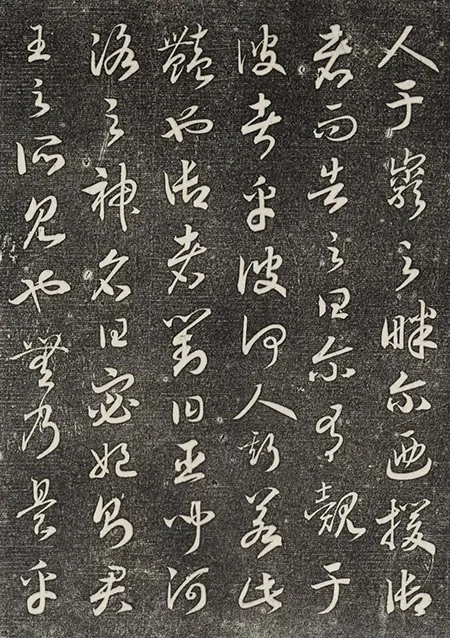 人于巖之畔爾迺援御
者而告之曰爾有覿于
彼者乎彼何人斯若此
豔也御者對曰臣聞河
洛之神名曰宓妃則君
王之所見也無乃是乎